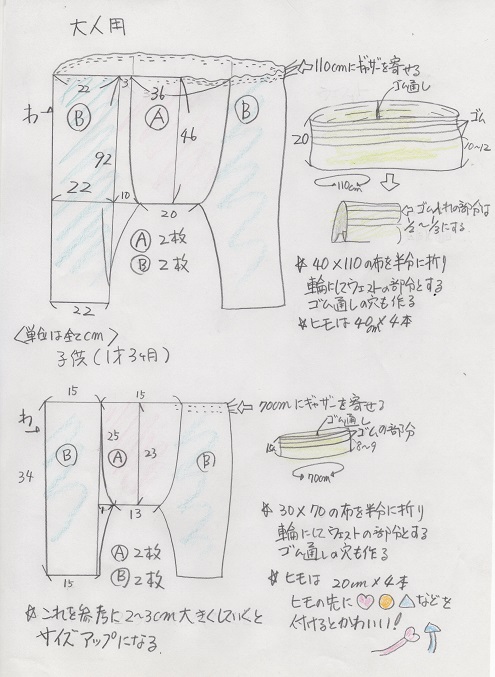 大人用
110cmにギャザーを寄せる
ゴム通し
22
3
36
わ
B
A
B
46
ゴム
20
92
10~12
110cm
22
10
20
ゴム入れの部分は
1/2~1/3にする
A 2枚
B 2枚
22
☆ 40×110の布を半分に折り
輪にしてウェストの部分とする
ゴム通しの穴も作る
☆ ヒモは40cm×4本
<単位は全てcm>
子供(1才3ヶ月)
15
15
70cmにギャザーを寄せる
ゴム通し
ゴムの部分
わ
B
25
A
23
B
8~9
34
70cm
13
☆ 30×70の布を半分に折り
輪にしてウェストの部分とする
ゴム通しの穴も作る
A 2枚
B 2枚
15
☆ ヒモは 20cm×4本
ヒモの先に♡○△などを
付けるとかわいい!
☆ これを参考に2~3cm大きくしていくと
サイズアップになる.